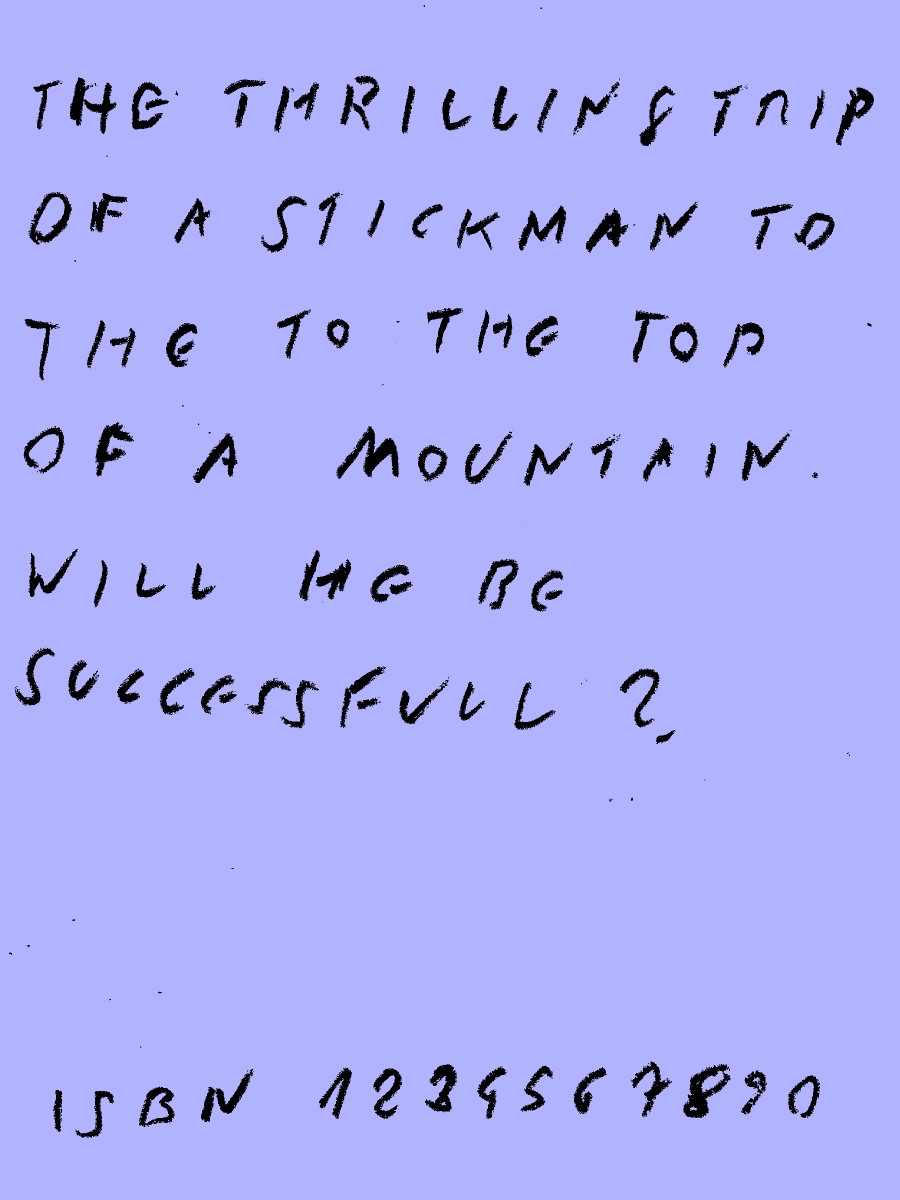 THE THRILLING TRIP
OF A STICKMAN TO
THE TO THE TOP
OF A MOUNTAIN.
WILL HE BE
SUCCESSFULL?
ISBN 1234567890